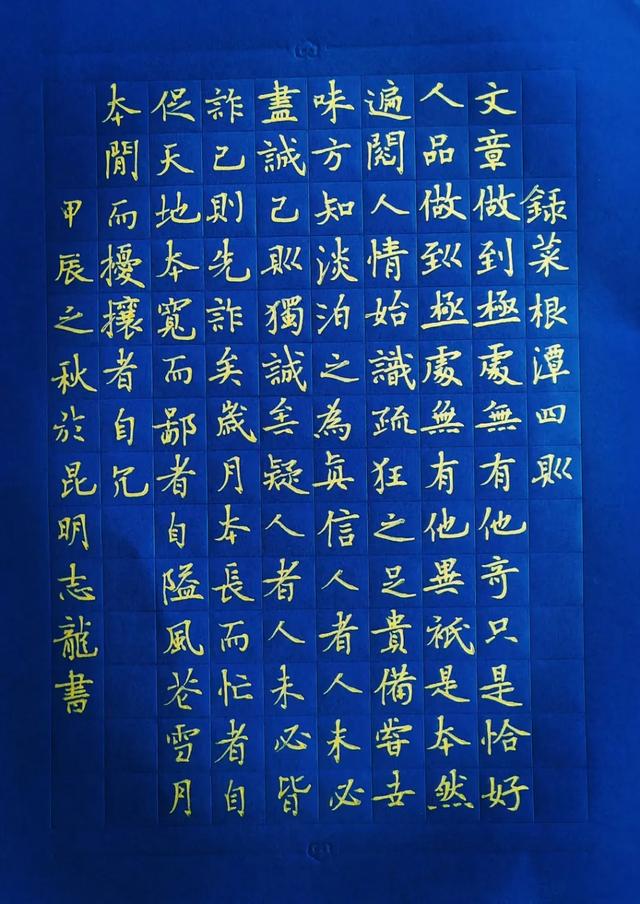 録菜根潭四則
文章做到極處無有他奇只是恰好
人品做到極處無有他異祇是本然
遍閱人情始識疏狂之足貴備嘗世
味方知淡泊之為真信人者人未必
盡誠己則獨誠矣疑人者人未必皆
詐己則先詐矣歲月本長而忙者自
促天地本寬而鄙者自隘風花雪月
本閒而擾攘者自冗
甲辰之秋於昆明志龍書